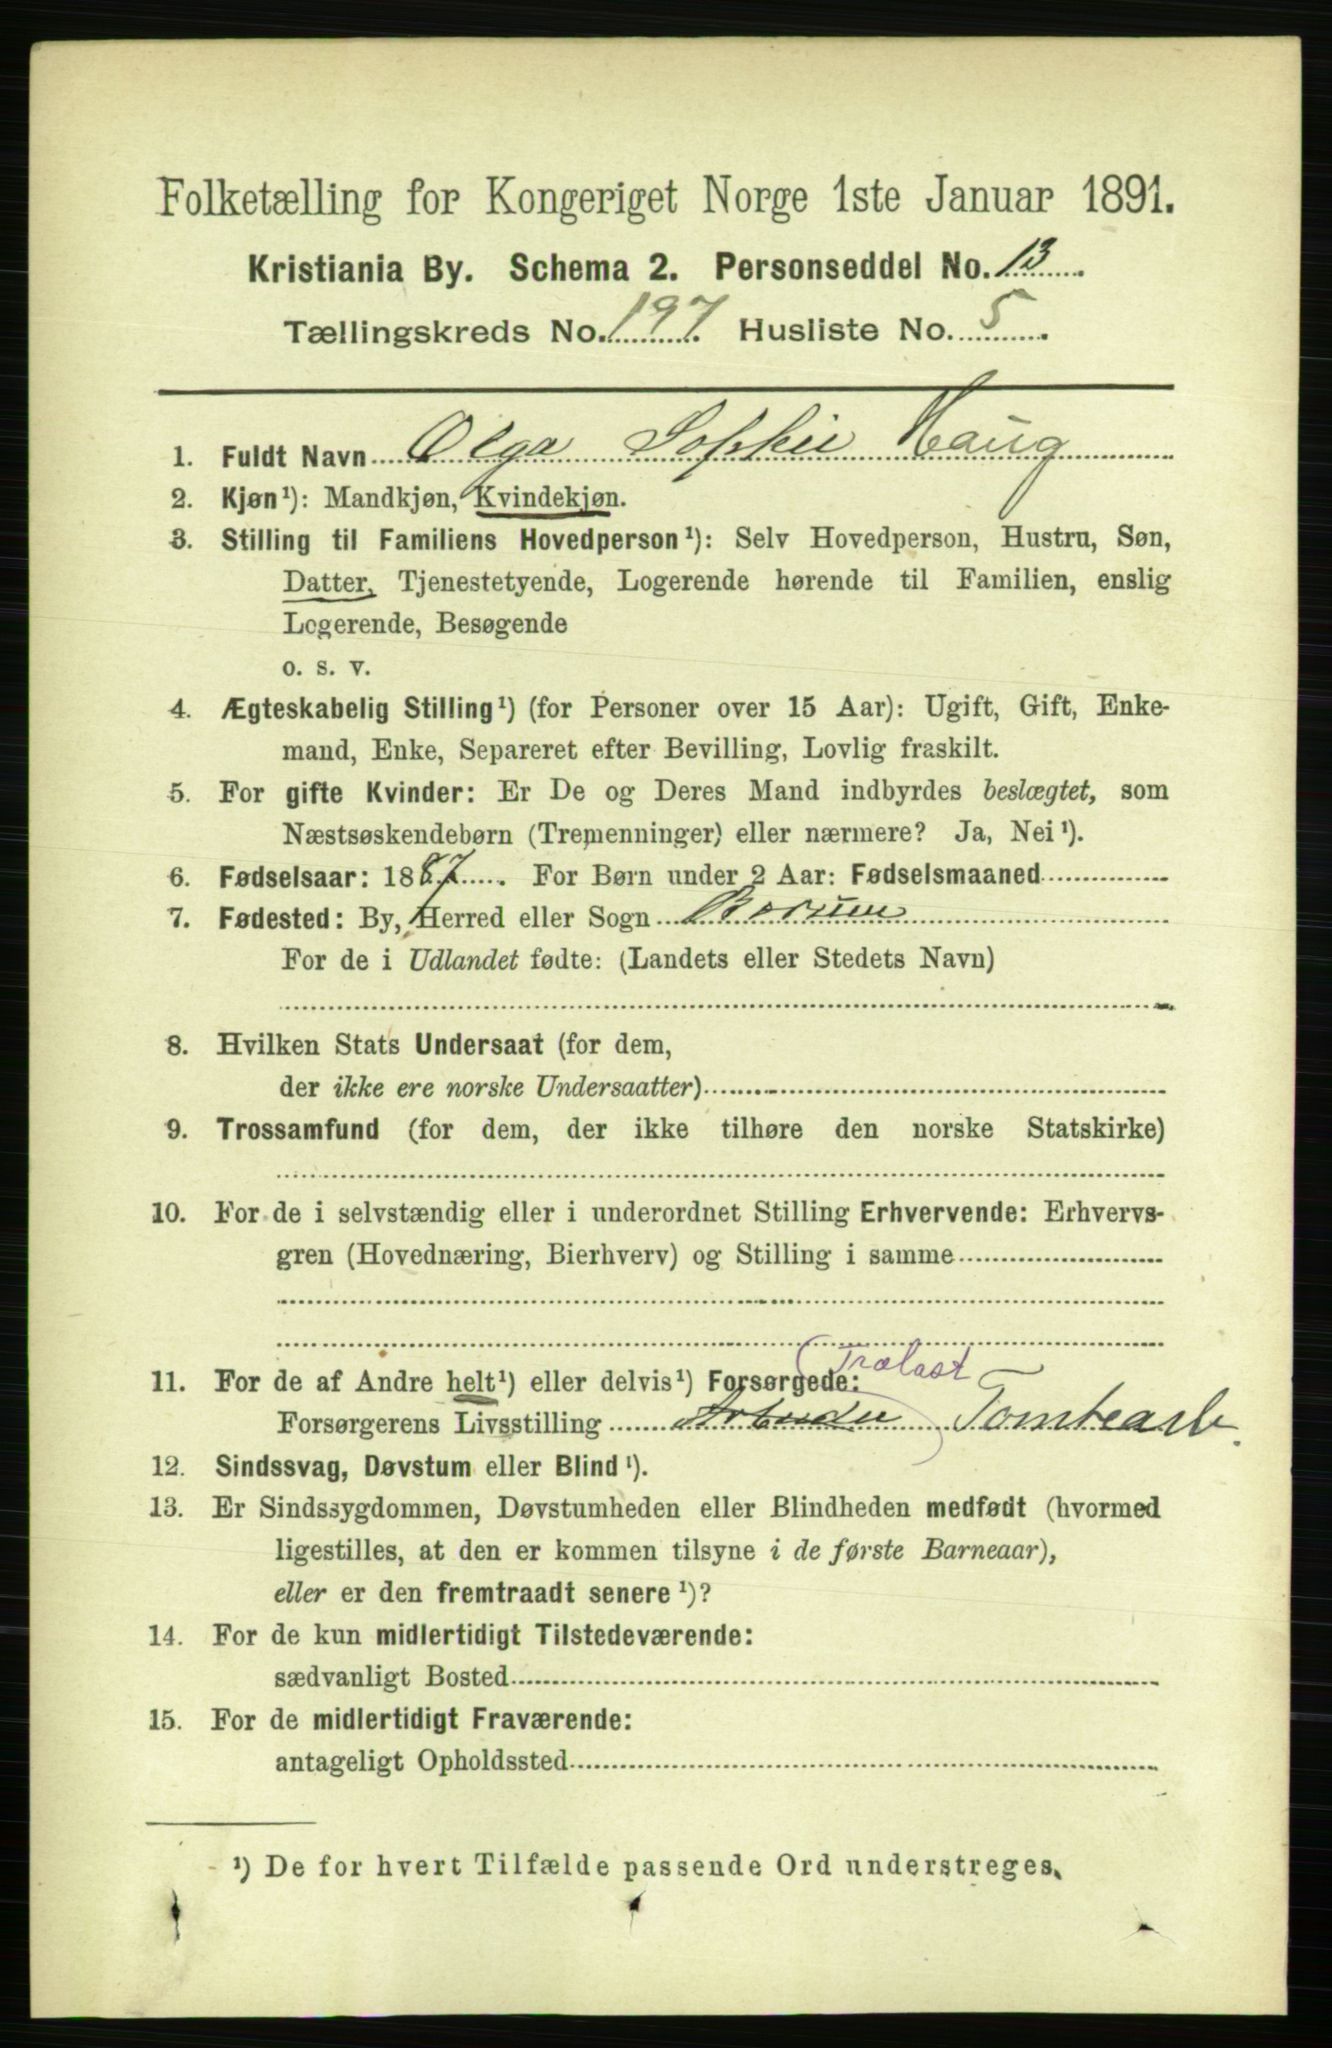 Folketælling for Kongeriget Norge 1ste Januar 1891.
Kristiania By. Schema 2. Personseddel No. 13
Tællingskreds No. 197 Husliste No. 5
1. Fuldt Navn Olga Sophie Haug
2. Kjøn¹): Mandkjøn, Kvindekjøn.
3. Stilling til Familiens Hovedperson¹): Selv Hovedperson, Hustru, Søn,
Datter, Tjenestetyende, Logerende hørende til Familien, enslig
Logerende, Besøgende
o. s. v.
4. Ægteskabelig Stilling¹) (for Personer over 15 Aar): Ugift, Gift, Enke-
mand, Enke, Separeret efter Bevilling, Lovlig fraskilt.
5. For gifte Kvinder: Er De og Deres Mand indbyrdes beslægtet, som
Næstsøskendebørn (Tremenninger) eller nærmere? Ja, Nei¹).
6. Fødselsaar: 1887. For Børn under 2 Aar: Fødselsmaaned
7. Fødested: By, Herred eller Sogn Borum
For de i Udlandet fødte: (Landets eller Stedets Navn)
8. Hvilken Stats Undersaat (for dem,
der ikke ere norske Undersaatter)
9. Trossamfund (for dem, der ikke tilhøre den norske Statskirke)
10. For de i selvstændig eller i underordnet Stilling Erhvervende: Erhvervs-
gren (Hovednæring, Bierhverv) og Stilling i samme
Trælast
11. For de af Andre helt¹) eller delvis¹) Forsørgede:
Forsørgerens Livsstilling Arbeider Tomtearb.
12. Sindssvag, Døvstum eller Blind¹).
13. Er Sindssygdommen, Døvstumheden eller Blindheden medfødt (hvormed
ligestilles, at den er kommen tilsyne i de første Barneaar),
eller er den fremtraadt senere¹)?
14. For de kun midlertidigt Tilstedeværende:
sædvanligt Bosted
15. For de midlertidigt Fraværende:
antageligt Opholdssted
¹) De for hvert Tilfælde passende Ord understreges.